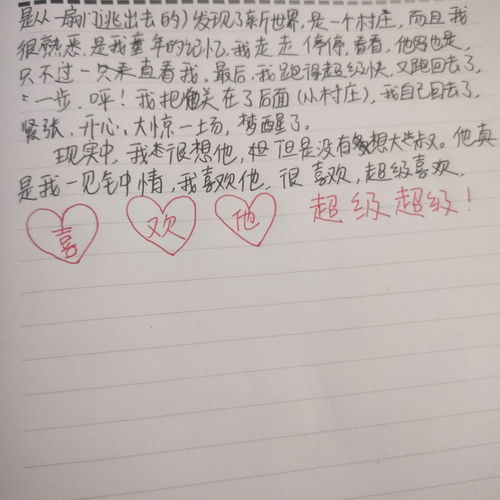 是从一扇门逃出去的)发现了新世界,是一个村庄,而且我
很熟悉,是我童年的记忆,我走走停停,看看,他也是,
只不过一只来直看我.最后,我跑得超级快,又跑回去了,
一步,呯!我把关在了后面(从村庄),我自己回去了,
紧张,开心,大惊一场,梦醒了。
现实中,我很想他,但是没有想大叔。他真
是我一见钟情,我喜欢他,很喜欢,超级喜欢,
喜 欢 他 超级超级!